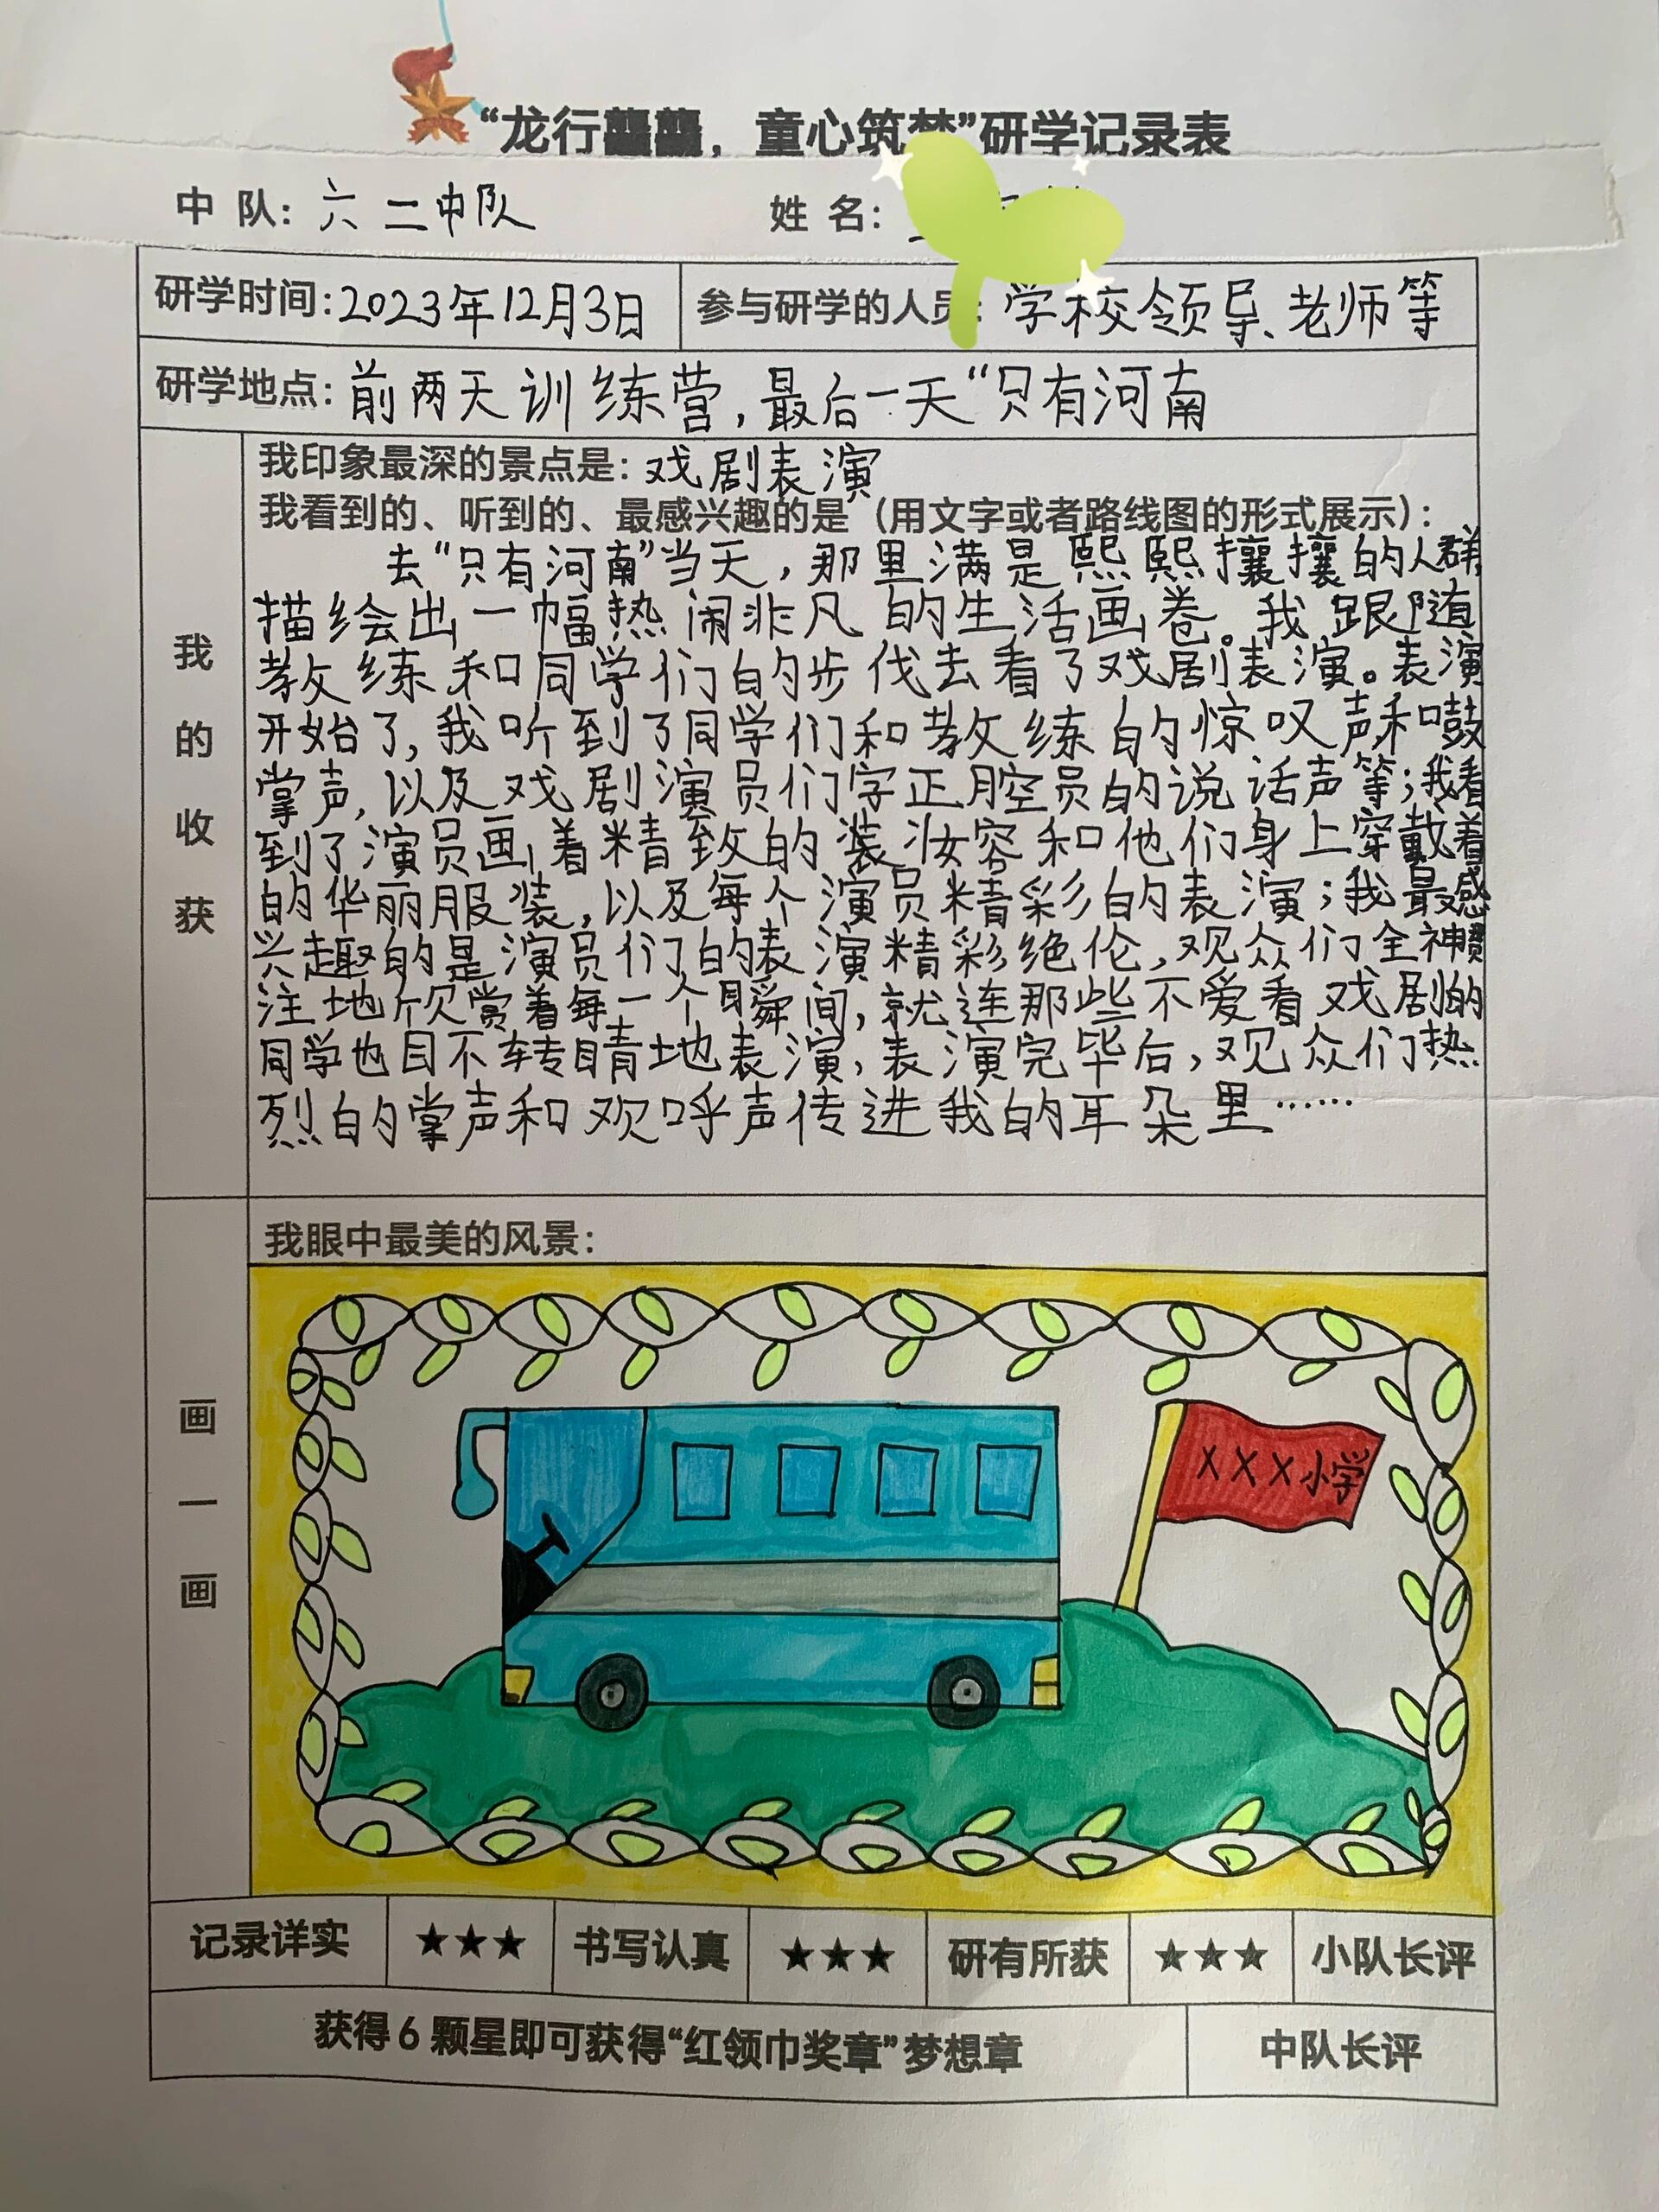 “龙行龘龘，童心筑梦”研学记录表
中 队：六二中队 姓 名：
研学时间：2023年12月3日 参与研学的人员：学校领导、老师等
研学地点：前两天训练营，最后一天“只有河南
我的收获
我印象最深的景点是：戏剧表演
我看到的、听到的、最感兴趣的是（用文字或者路线图的形式展示）：
去“只有河南”当天，那里满是熙熙攘攘的人群，
描绘出一幅热闹非凡的生活画卷。我跟随
教练和同学们的步伐去看了戏剧表演。表演
开始了，我听到了同学们和教练的惊叹声和鼓
掌声，以及戏剧演员们字正腔员的说话声等；我看
到了演员画着精致的装妆容和他们身上穿戴着
的华丽服装，以及每个演员精彩的表演；我最感
兴趣的是演员们的表演精彩绝伦，观众们全神贯
注地欣赏着每一个瞬间，就连那些不爱看戏剧的
同学也目不转睛地表演，表演完毕后，观众们热
烈的掌声和欢呼声传进我的耳朵里……
画一画
我眼中最美的风景：
XXX小学
记录详实 ★★★ 书写认真 ★★★ 研有所获 ★★★ 小队长评
获得6颗星即可获得“红领巾奖章”梦想章 中队长评